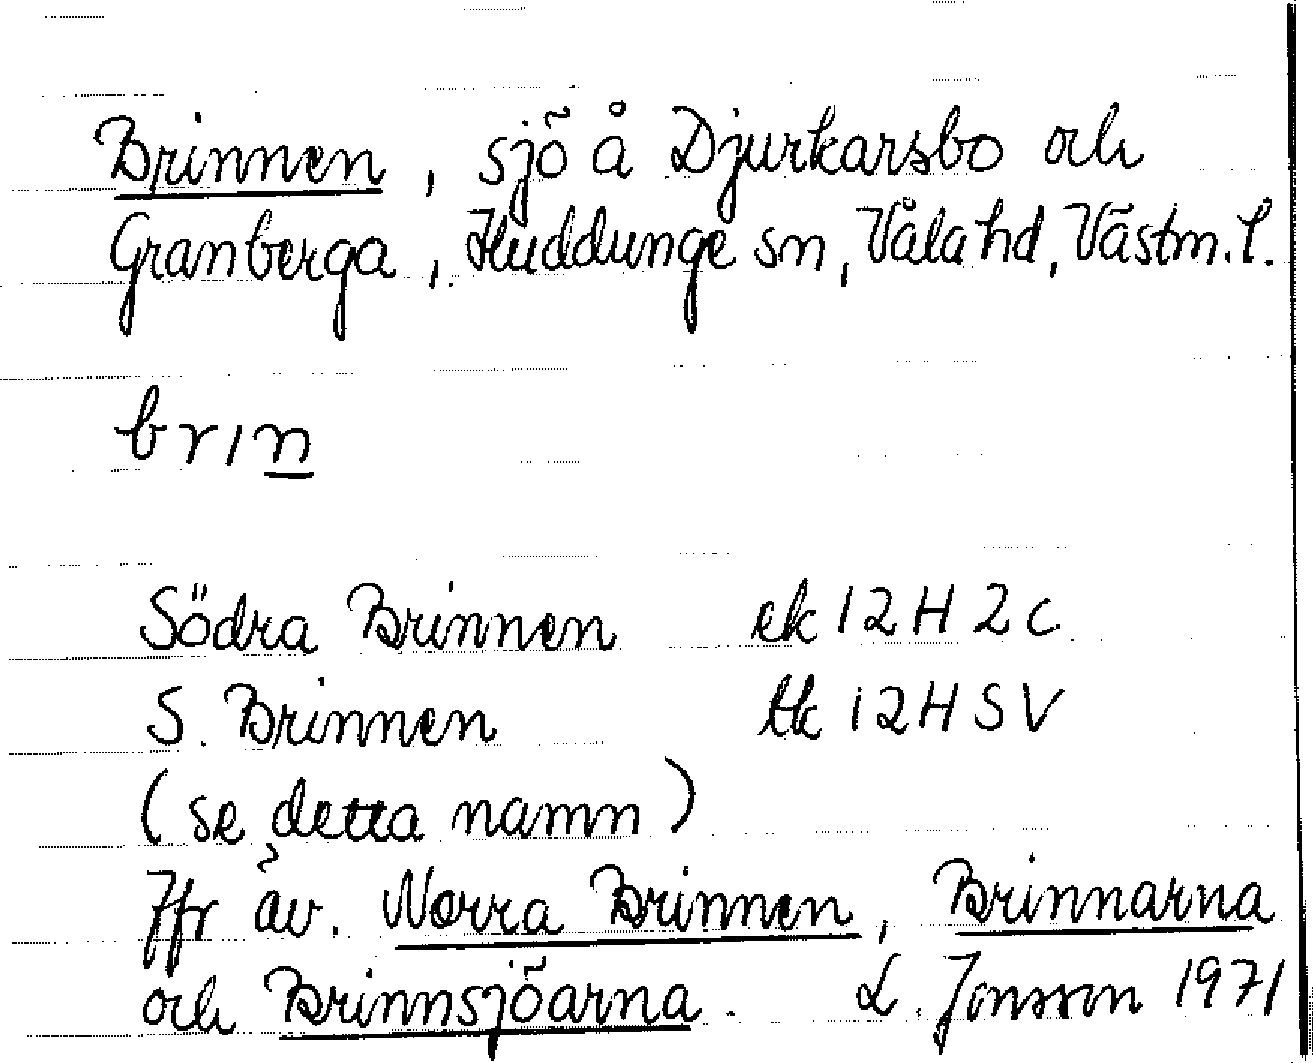 Brinnen, sjö å Djurkarsbo och
Granberga, Huddunge sn, Våla hd, Västm. l.
brin
Södra Brinnen ek 12H 2c
S. Brinnen tk 12H SV
(se detta namn)
Jfr äv. Norra Brinnen, Brinnarna
och Brinnsjöarna. L. Jonsson 1971